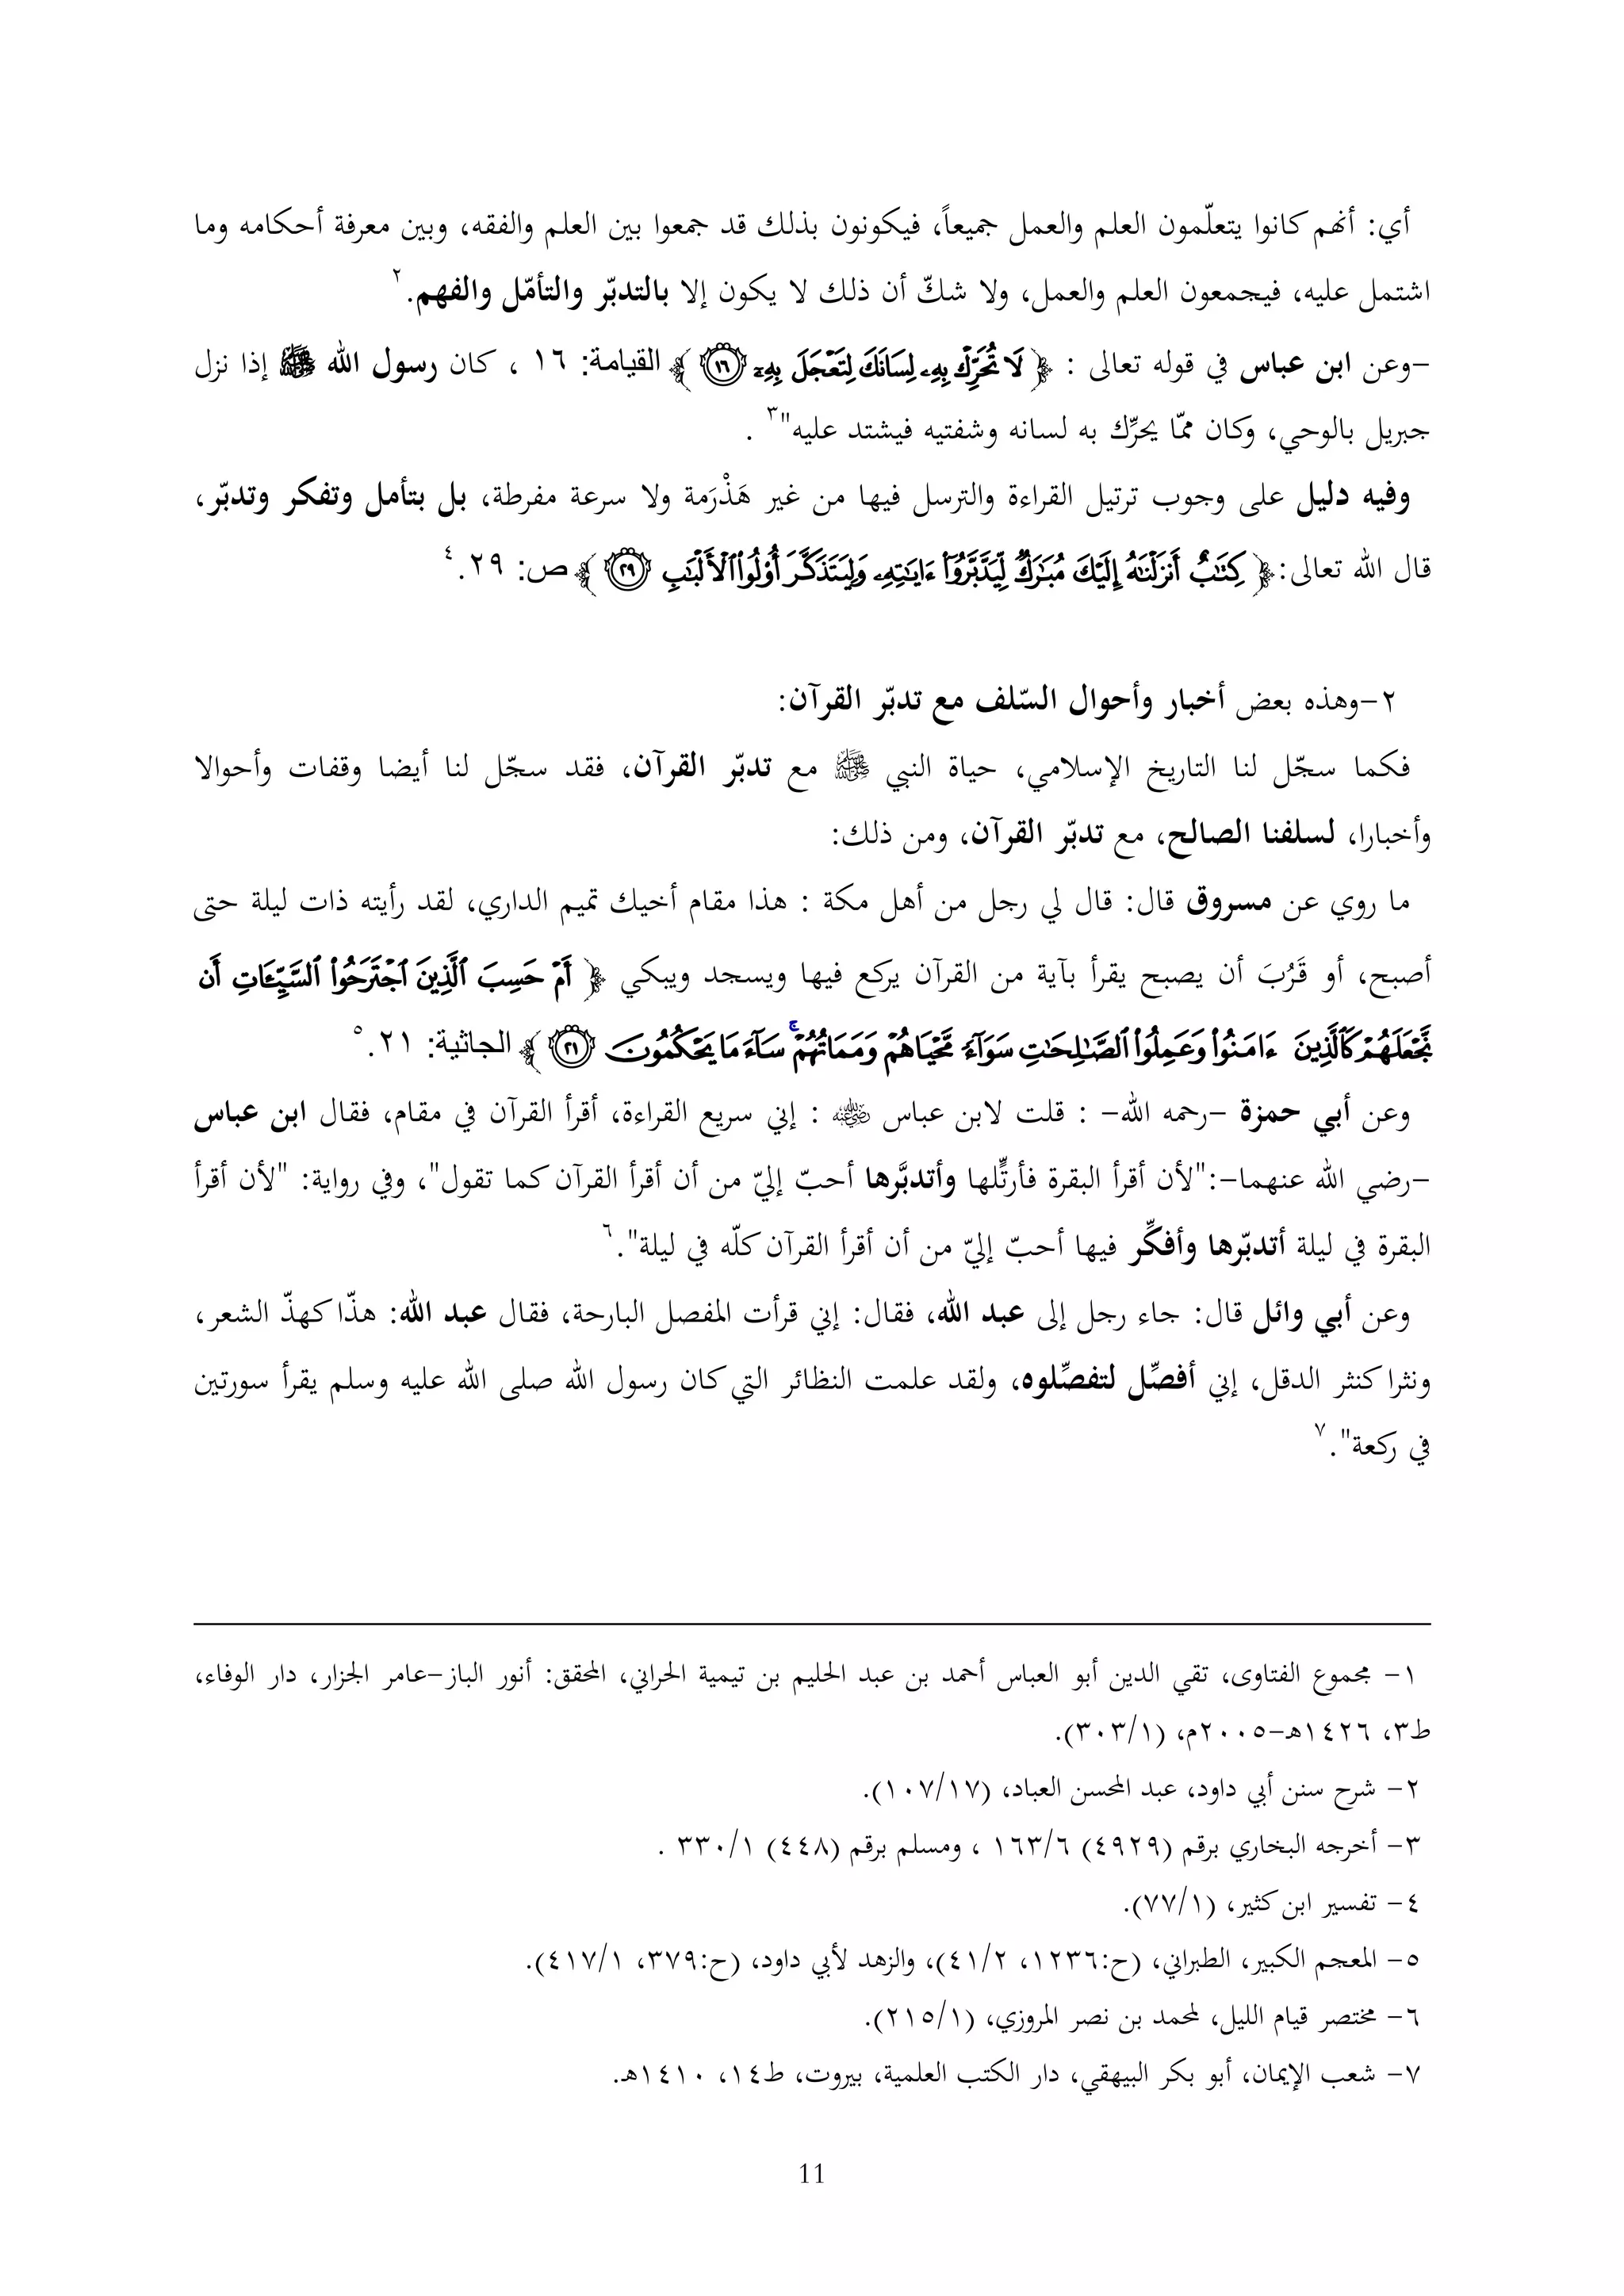 أي: أنهم كانوا يتعلّمون العلم والعمل جميعاً، فيكونون بذلك قد جمعوا بين العلم والفقه، وبين معرفة أحكامه وما
اشتمل عليه، فيجمعون العلم والعمل، ولا شكّ أن ذلك لا يكون إلا بالتدبّر والتأمّل والفهم.٢
-وعن ابن عباس في قوله تعالى : ﴿ لَا تُحَرِّكۡ بِهِۦ لِسَانَكَ لِتَعۡجَلَ بِهِۦٓ ١٦ ﴾ القيامة: ١٦ ، كان رسول الله ﷺ إذا نزل
جبريل بالوحي، وكان ممّا يحرِّك به لسانه وشفتيه فيشتد عليه"٣ .
وفيه دليل على وجوب ترتيل القراءة والترسل فيها من غير هَذْرَمة ولا سرعة مفرطة، بل بتأمل وتفكر وتدبّر،
قال الله تعالى:﴿ كِتَٰبٌ أَنزَلۡنَٰهُ إِلَيۡكَ مُبَٰرَكٞ لِّيَدَّبَّرُوٓاْ ءَايَٰتِهِۦ وَلِيَتَذَكَّرَ أُوْلُواْ ٱلۡأَلۡبَٰبِ ٢٩ ﴾ ص: ٢٩.٤
٢-وهذه بعض أخبار وأحوال السّلف مع تدبّر القرآن:
فكما سجّل لنا التاريخ الإسلامي، حياة النبي ﷺ مع تدبّر القرآن، فقد سجّل لنا أيضا وقفات وأحوالا
وأخبارا، لسلفنا الصالح، مع تدبّر القرآن، ومن ذلك:
ما روي عن مسروق قال: قال لي رجل من أهل مكة : هذا مقام أخيك تميم الداري، لقد رأيته ذات ليلة حتى
أصبح، أو قَرُبَ أن يصبح يقرأ بآية من القرآن يركع فيها ويسجد ويبكي ﴿ أَمۡ حَسِبَ ٱلَّذِينَ ٱجۡتَرَحُواْ ٱلسَّيِّـَٔاتِ أَن
نَّجۡعَلَهُمۡ كَٱلَّذِينَ ءَامَنُواْ وَعَمِلُواْ ٱلصَّٰلِحَٰتِ سَوَآءٗ مَّحۡيَاهُمۡ وَمَمَاتُهُمۡۚ سَآءَ مَا يَحۡكُمُونَ ٢١ ﴾ الجاثية: ٢١.٥
وعن أبي حمزة -رحمه الله- : قلت لابن عباس رضي الله عنه : إني سريع القراءة، أقرأ القرآن في مقام، فقال ابن عباس
-رضي الله عنهما-:"لأن أقرأ البقرة فأرتِّلها وأتدبَّرها أحبّ إليّ من أن أقرأ القرآن كما تقول"، وفي رواية: "لأن أقرأ
البقرة في ليلة أتدبّرها وأفكِّر فيها أحبّ إليّ من أن أقرأ القرآن كلّه في ليلة".٦
وعن أبي وائل قال: جاء رجل إلى عبد الله، فقال: إني قرأت المفصل البارحة، فقال عبد الله: هذّا كهذّ الشعر،
ونثرا كنثر الدقل، إني أفصِّل لتفصِّلوه، ولقد علمت النظائر التي كان رسول الله صلى الله عليه وسلم يقرأ سورتين
في ركعة".٧
١- مجموع الفتاوى، تقي الدين أبو العباس أحمد بن عبد الحليم بن تيمية الحراني، المحقق: أنور الباز-عامر الجزار، دار الوفاء،
ط٣، ١٤٢٦هـ-٢٠٠٥م، (٣٠٣/١).
٢- شرح سنن أبي داود، عبد المحسن العباد، (١٠٧/١٧).
٣- أخرجه البخاري برقم (٤٩٢٩) ١٦٣/٦ ، ومسلم برقم (٤٤٨) ٣٣٠/١ .
٤- تفسير ابن كثير، (٧٧/١).
٥- المعجم الكبير، الطبراني، (ح:١٢٣٦، ٤١/٢)، والزهد لأبي داود، (ح:٣٧٩، ٤١٧/١).
٦- مختصر قيام الليل، لمحمد بن نصر المروزي، (٢١٥/١).
٧- شعب الإيمان، أبو بكر البيهقي، دار الكتب العلمية، بيروت، ط١٤، ١٤١٠هـ.
11